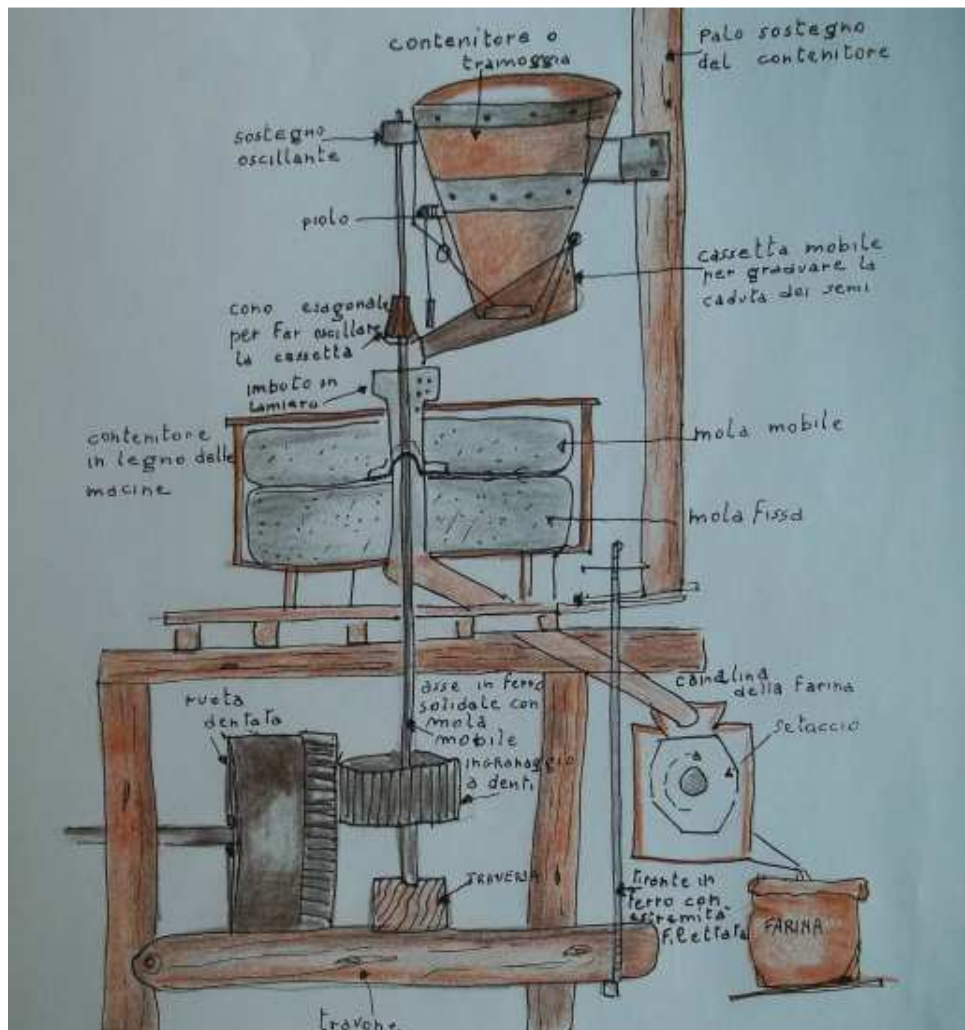 contenitore o
tramoggia
Palo sostegno
del contenitore
sostegno
oscillante
piolo
cassetta mobile
per graduare la
caduta dei semi
cono esagonale
per far oscillare
la cassetta
imbuto in
lamiera
contenitore
in legno delle
macine
mola mobile
mola fissa
ruota
dentata
asse in ferro
solidale con
mola
mobile
ingranaggio
a denti
canalina
della farina
setaccio
TRAVERSA
tirante in
ferro con
estremità
filettata
FARINA
travone